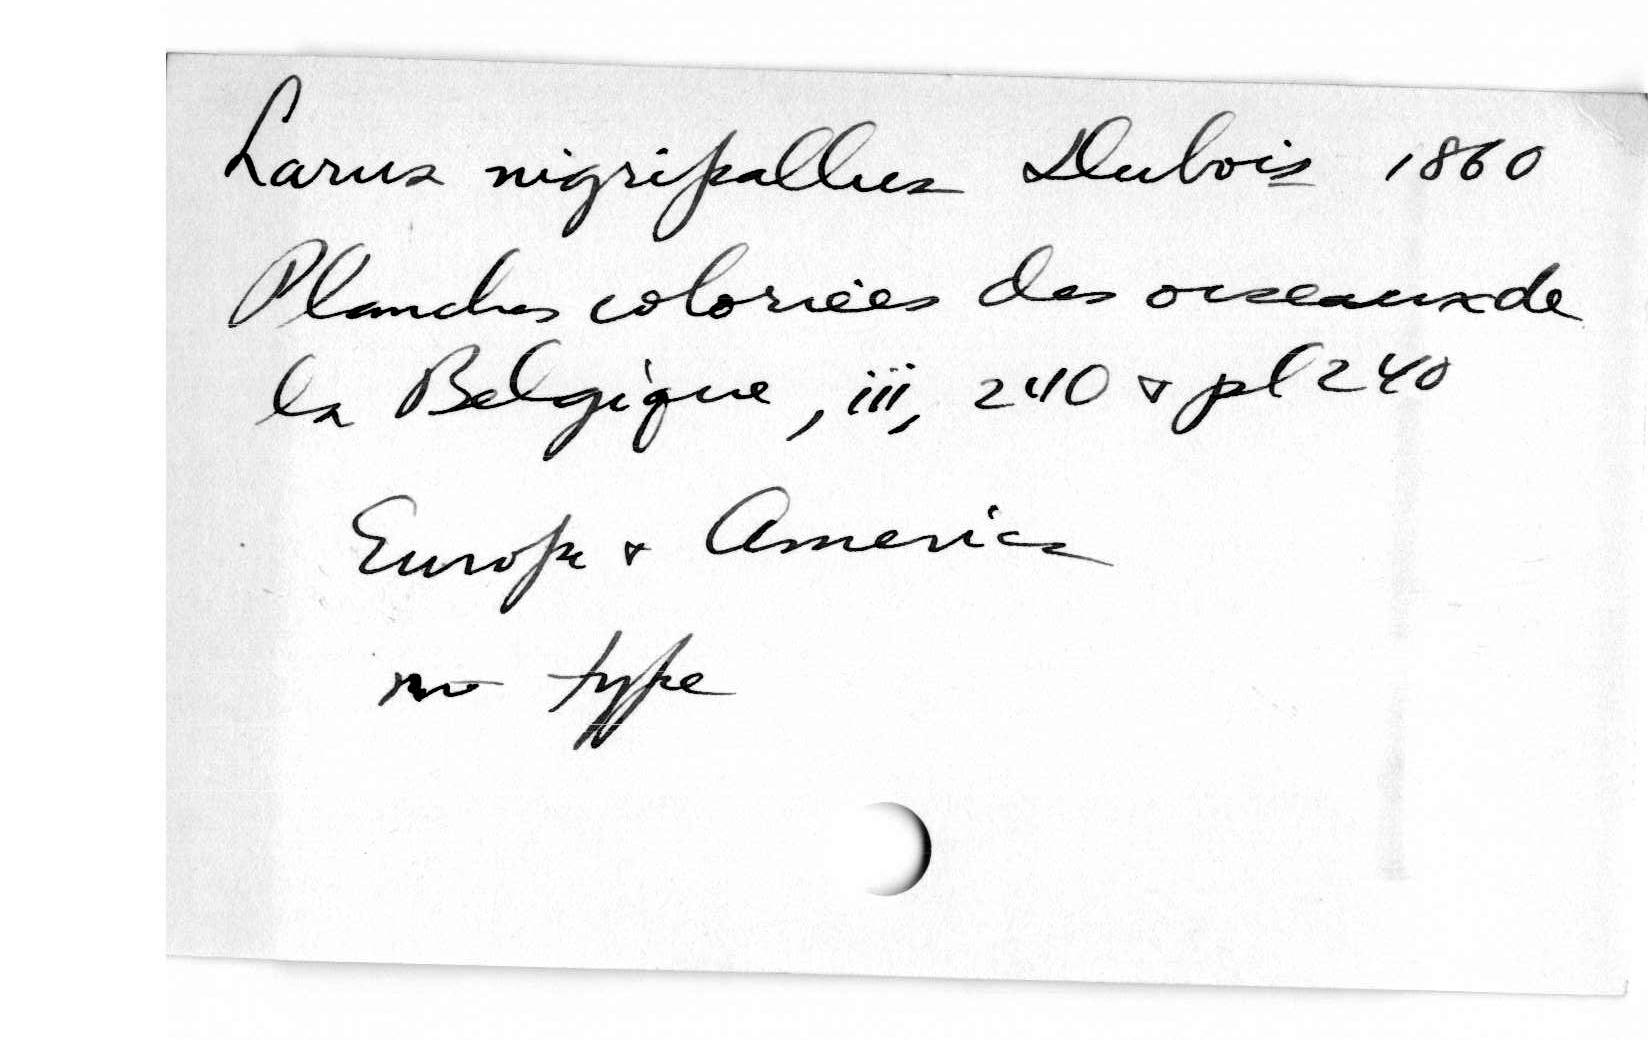 Larus nigripallus Dubois 1860
Planches coloriées des oiseaux de
la Belgique, iii, 240 & pl 240
Europe & America
no type